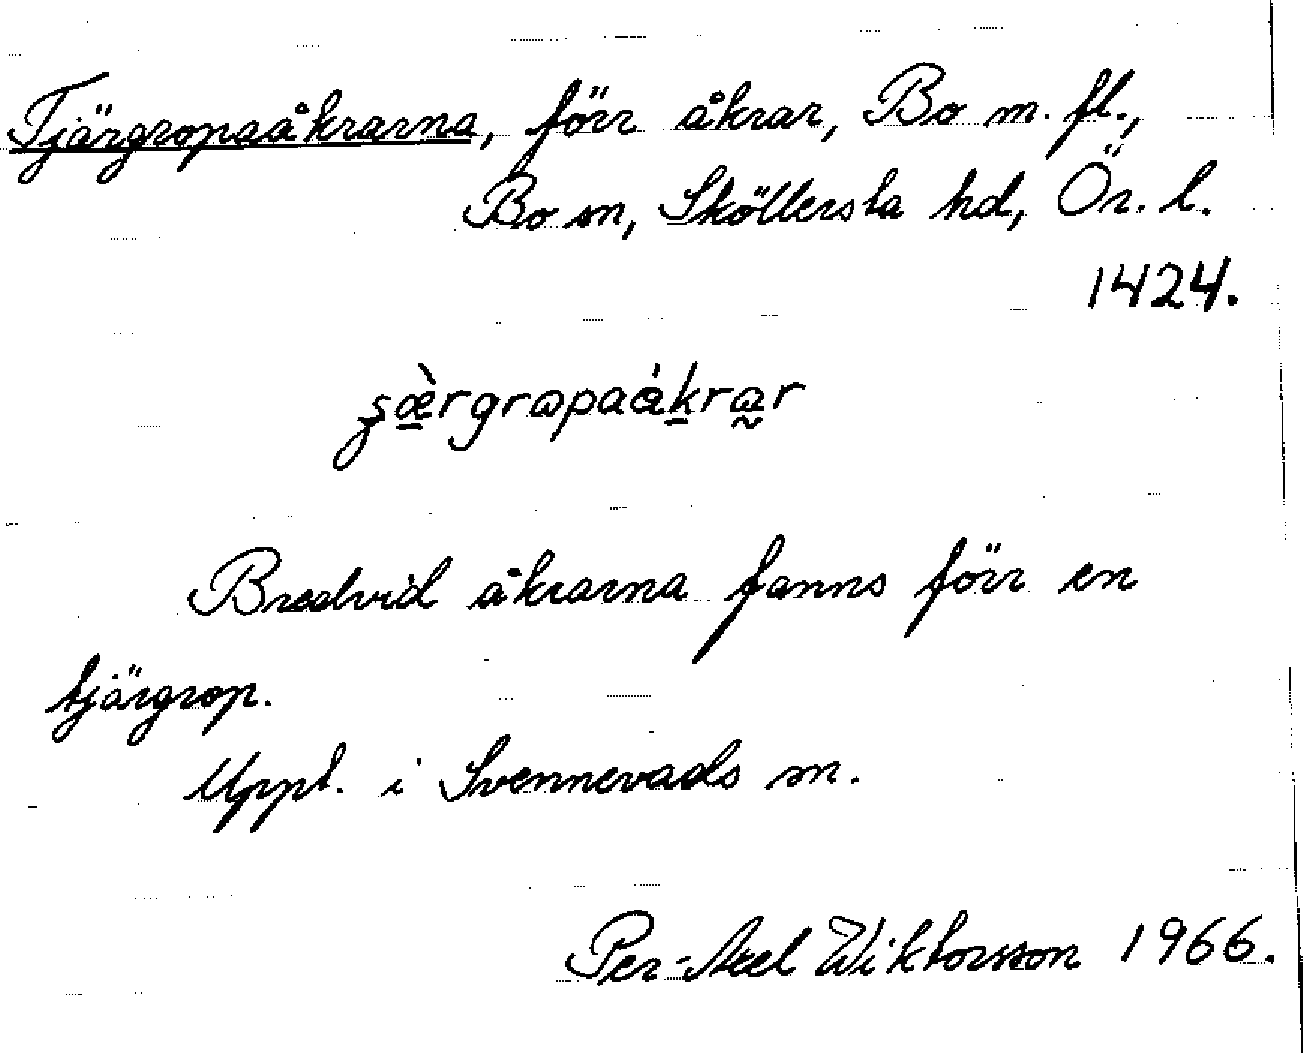 Tjärgropaåkrarna, förr åkrar, Bo m. fl.,
Bo sn, Sköllersta hd, Ör. l.
1424.
Bredvid åkrarna fanns förr en
tjärgrop.
Uppt. i Svennevads sn.
Per-Axel Wiktorsson 1966.